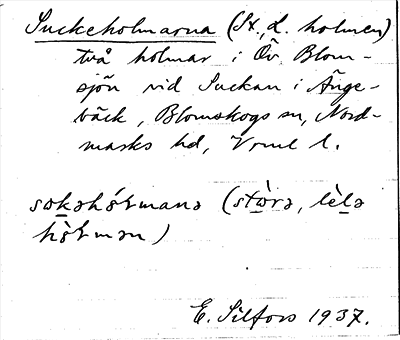 Suckeholmarna (St., L. holmen)
två holmar i Öv. Blom-
sjön vid Suckan i Änge-
bäck, Blomskogs sn, Nord-
marks hd, Vrml l.
(stòrə, lèlə
E. Silfors 1937.